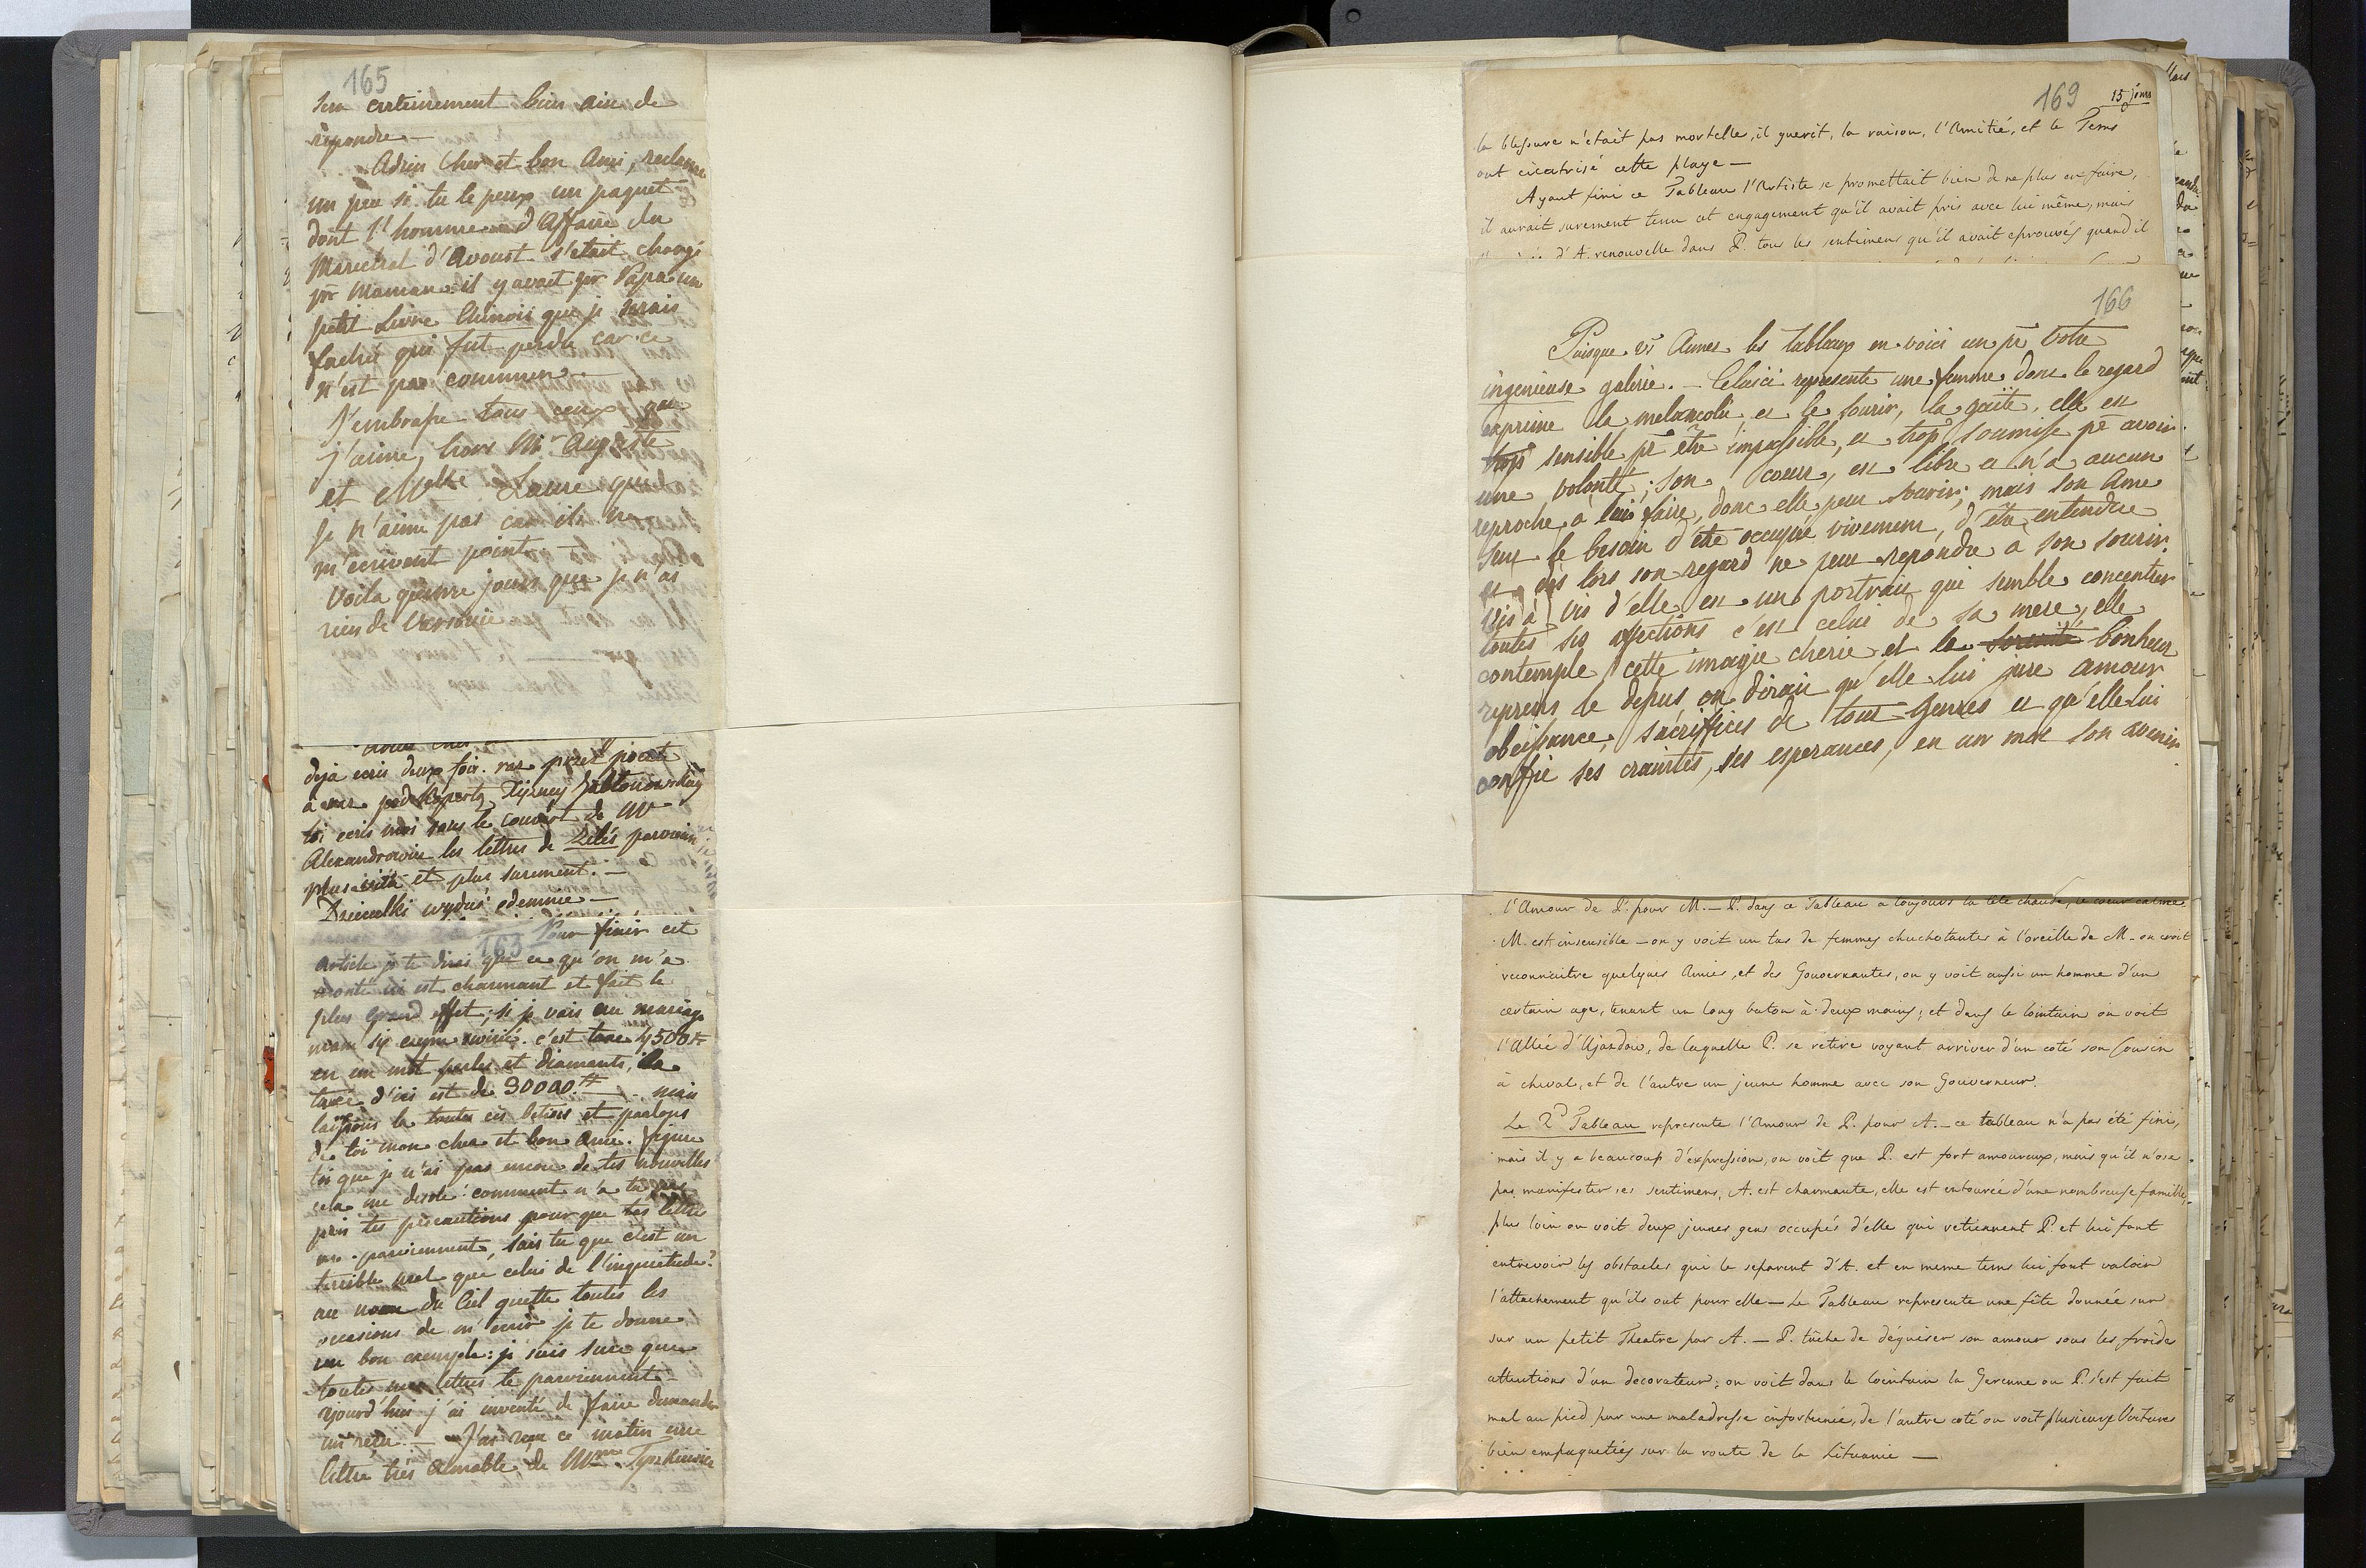 165
sera certainement bien aise de
repondre —
Adieu Cher et bon Ami, reclame
un peu si tu le peux un paquet
dont l'homme d'Affaire du
Marechal d'Avoust s'etait chargé
pr Maman. il y avait pr Papa un
petit Livre Chinois que je serais
faché qui fut perdu car ce
n'est pas commun. —
J'embrasse tous ceux que
j'aime, hors Mr Auguste
et Melle Laure que
je n'aime pas car ils ne
m'ecrivent point
Voila quinze jours que je n'ai
rien de Varsovie
deja ecris deux fois.
à
toi ecris moi sous le couvert de Mr
Alexandrowicz les lettres de Lelés parvien
plus vite et plus surement. —
163 Pour finir cet
article je te dirai que ce qu'on m'a
monté ici est charmant et fait le
plus grand effet, si je vais au mariage
c'est taxé 4500#
en un mot perles et diamants, la
taxe d'ici est de 30000# — mais
laissons la toutes ces betises et parlons
de toi mon cher et bon Ami. figure
toi que je n'ai pas encore de tes nouvelles
cela me desole! comment n'a tu pas
pris tes precautions pour que tes lettres
me parviennent, sais tu que c'est un
terrible mal que celui de l'inquietude?
au nom du Ciel guette toutes les
occasions de m'ecrire je te donne
un bon exemple: je suis sure que
toutes mes lettres te parviennent
ajourd'hui j'ai inventé de faire demander
un reçu. — J'ai reçu ce matin une
lettre très aimable de Mme Tyszkiewicz
169 15 jours
la blessure n'était pas mortelle, il guerit, la raison, l'Amitié, et le Tems
ont cicatrisé cette playe —
Ayant fini ce Tableau l'Artiste se promettait bien de ne plus en faire,
il aurait surement tenu cet engagement qu'il avait pris avec lui même, mais
d'A. renouvelle dans P. tous les sentimens qu'il avait eprouvés quand il
166
Puisque vs Aimez les tableaux en voici un pr votre
ingenieuse galerie. — Celuici represente une femme dont le regard
exprime la melancolie et le sourir, la gaité, elle est
trop sensible pr etre impassible, et trop soumise pr avoir
une volonté; son coeur, est libre et n'a aucun
reproche à lui faire, donc elle peut sourir; mais son Ame
sent le besoin d'être occupée vivement, d'etre entendue
et dès lors son regard ne peut repondre à son sourir.
Vis à vis d'elle est un portrait qui semble concentrer
toutes ses affections c'est celui de sa mere, elle
contemple cette image cherie et le bonheur
reprens le dessus, on dirait qu'elle lui jure amour
obeissance, sacriffices de tout Genres et qu'elle lui
confie ses craintes, ses esperances, en un mot son avenir
l'Amour de P. pour M. — P. dans ce Tableau a toujours la tête chaude, le coeur calme
M. est insensible — on y voit un tas de femmes chuchotantes à l'oreille de M. on croit
reconnaitre quelques Amies, et des Gouvernantes, on y voit aussi un homme d'un
certain age, tenant un long baton à deux mains; et dans le lointain on voit
l'Allée d'Ujazdow, de laquelle P. se retire voyant arriver d'un coté son Cousin
à cheval, et de l'autre un jeune homme avec son Gouverneur.
Le 2d Tableau represente l'Amour de P. pour A. — ce tableau n'a pas été fini,
mais il y a beaucoup d'expression, on voit que P. est fort amoureux, mais qu'il n'ose
pas manifester ses sentimens, A. est charmante, elle est entourée d'une nombreuse famille,
plus loin on voit deux jeunes gens occupés d'elle qui retiennent P. et lui font
entrevoir les obstacles qui le separent d'A. et en meme tems lui font valoir
l'attachement qu'ils ont pour elle — Le Tableau represente une fête donnée sur
sur un petit Theatre par A. — P. tâche de déguiser son amour sous les froides
attentions d'un decorateur; on voit dans le lointain la Garenne ou P. s'est fait
mal au pied par une maladresse infortunée, de l'autre coté on voit plusieurs Voitures
bien empaquetées sur la route de la Lituanie —